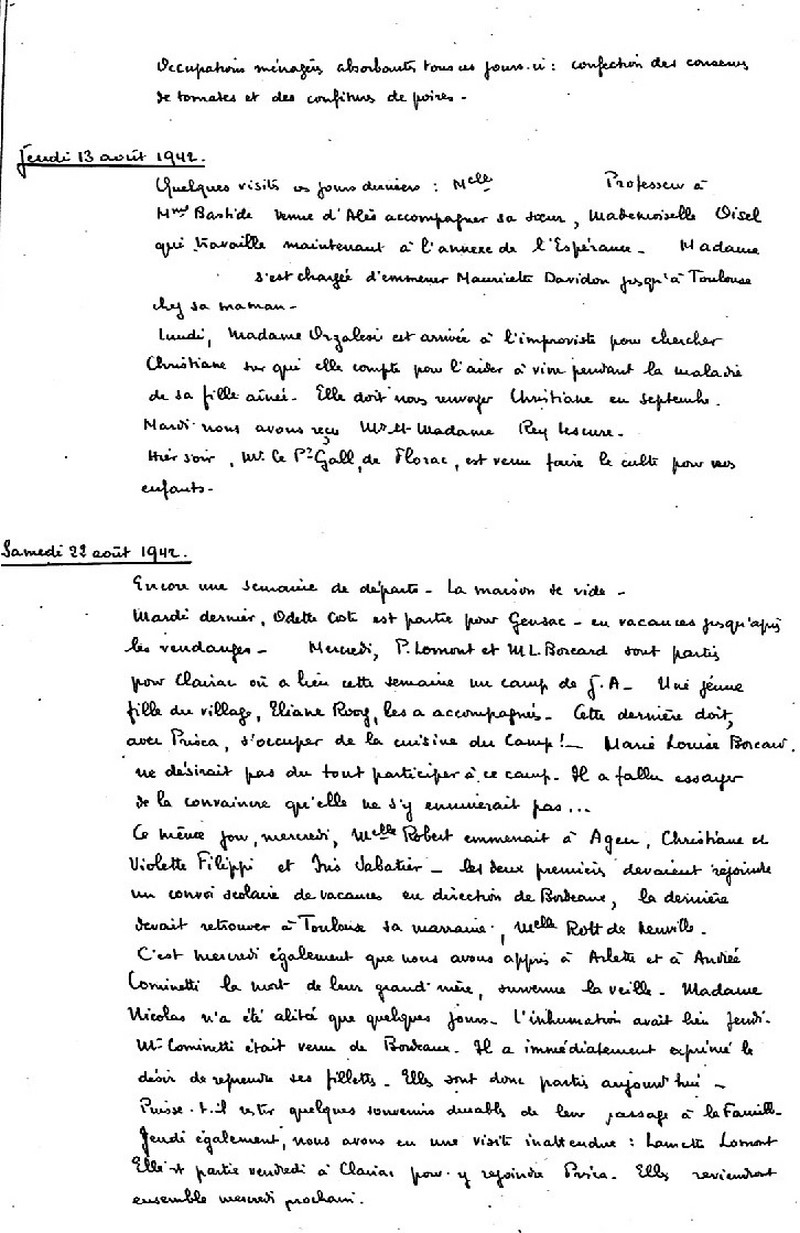 Occupations ménagères absorbantes tous ces jours-ci : confection des conserves
de tomates et des confitures de poires -
Jeudi 13 août 1942.
Quelques visites ces jours derniers : Melle Professeur à
Mme Bastide venue d'Alès accompagner sa sœur, Mademoiselle Oisel
qui travaille maintenant à l'annexe de l'Espérance - Madame
s'est chargée d'emmener Mauricette Davidon jusqu'à Toulouse
chez sa maman -
Lundi, Madame est arrivée à l'improviste pour chercher
Christiane sur qui elle compte pour l'aider à vivre pendant la maladie
de sa fille aînée - Elle doit nous renvoyer Christiane en septembre.
Mardi nous avons reçu Mr et Madame Rey Lescure -
Hier soir, Mr le Pr Gall, de Florac, est venu faire le culte pour nos
enfants -
Samedi 22 août 1942.
Encore une semaine de départs - La maison se vide -
Mardi dernier, Odette Coste est partie pour Gensac - en vacances jusqu'après
les vendanges - Mercredi, P. Lomont et M.L. Borcard sont parties
pour Clairac où a lieu cette semaine un camp de J.A - Une jeune
fille du village, Eliane Roog, les a accompagnées - Cette dernière doit,
avec Prisca, s'occuper de la cuisine du Camp ! - Marie Louise Borcard
ne désirait pas du tout participer à ce camp. Il a fallu essayer
de la convaincre qu'elle ne s'y ennuierait pas ...
Ce même jour, mercredi, Melle Robert emmenait à Agen, Christiane et
Violette Filippi et Iris Sabatier - les deux premières devaient rejoindre
un convoi scolaire de vacances en direction de Bordeaux, la dernière
devait retrouver à Toulouse sa marraine, Melle Rott de Neuville -
C'est mercredi également que nous avons appris à Arlette et à Andrée
Cominetti la mort de leur grand'mère, survenue la veille - Madame
Nicolas n'a été alitée que quelques jours - l'inhumation avait lieu jeudi -
Mr Cominetti était venu de Bordeaux - Il a immédiatement exprimé le
désir de reprendre ses fillettes - Elles sont donc parties aujourd'hui -
Puisse-t-il rester quelques souvenirs durables de leur passage à la Famille -
Jeudi également, nous avons eu une visite inattendue : Lomont
Elle est partie vendredi à Clairac pour y rejoindre Prisca - Elles reviendront
ensemble mercredi prochain.